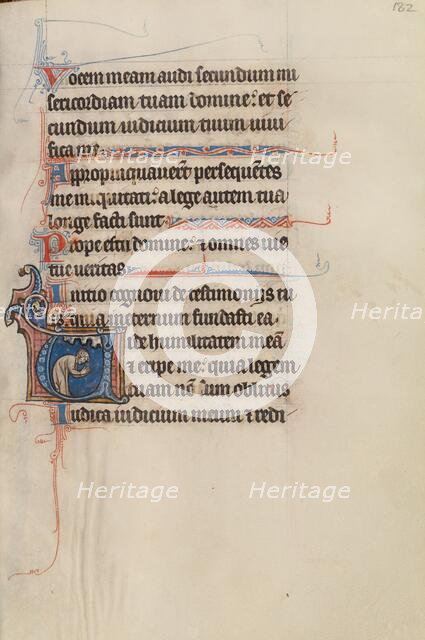 182
Vocem meam audi secundum mi
sericordiam tuam domine: et se
cundum iudicium tuum uiui
fica me
Appropinquauerūt persequētes
me iniquitati: a lege autem tua
longe facti sunt
Prope es tu domine: ⁊ omnes uie
tue ueritas
Initio cognoui de testimonijs tu
is quia in eternum fundasti ea
Vide humilitatem meā
⁊ eripe me: quia legem
tuam nō sum oblitus
Iudica iudicium meum ⁊ redi
Heritage
Heritage
Heritage
Heritage
Heritage
Heritage
Heritage